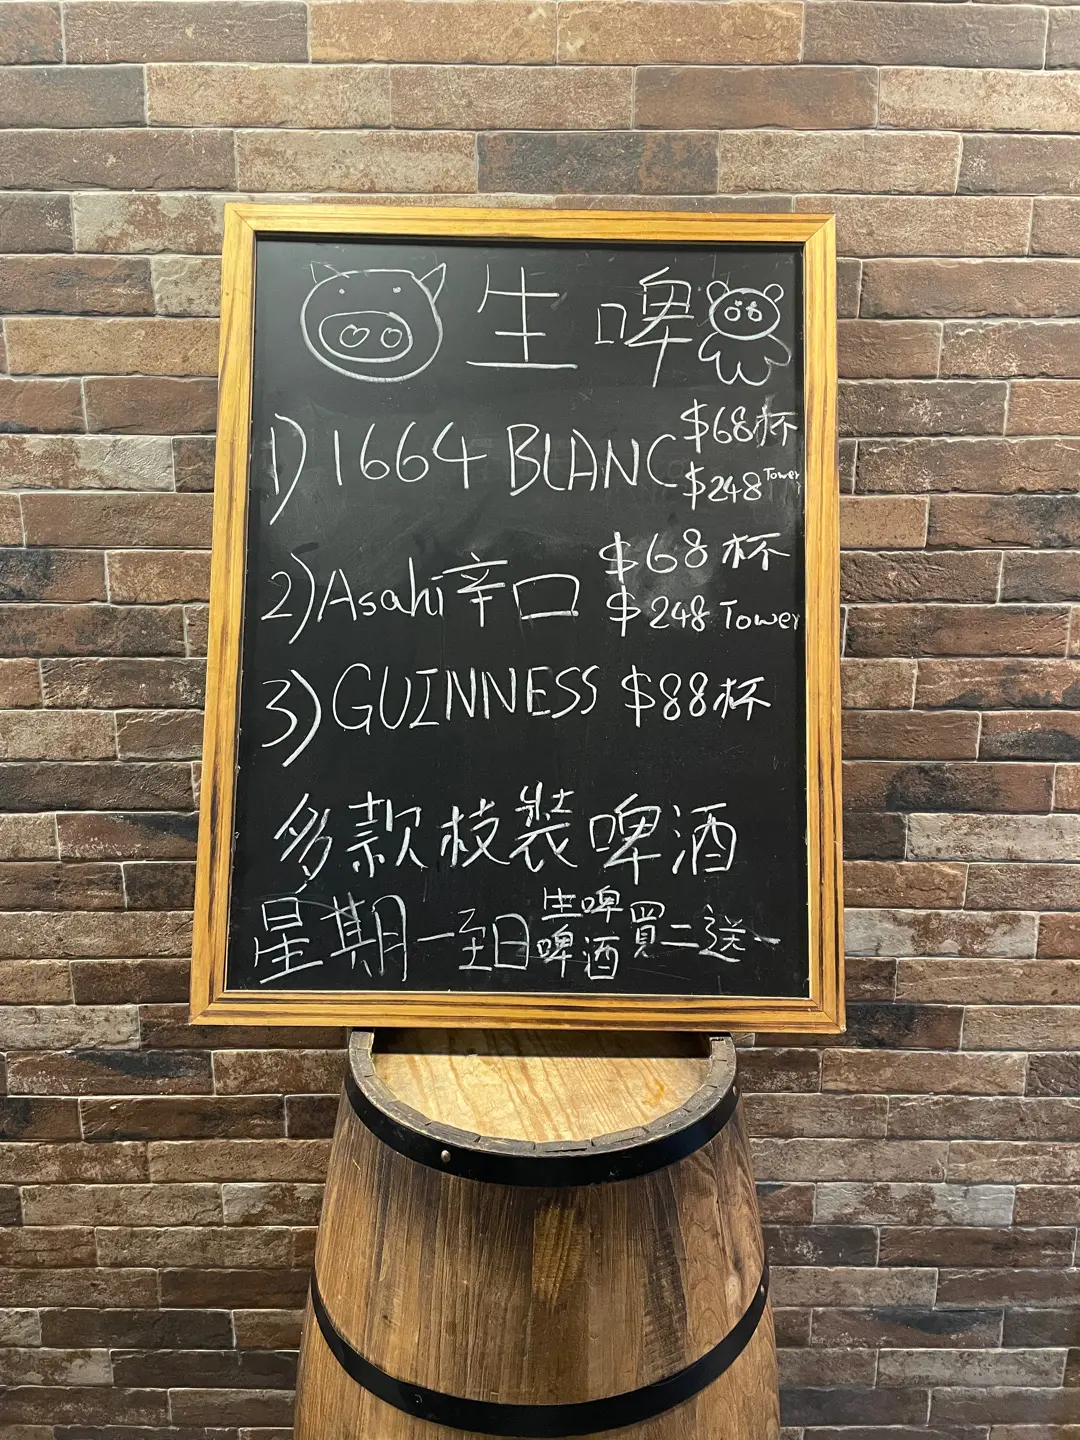 生啤
1) 1664 BLANC $68杯
$248 Tower
2) Asahi 辛口 $68杯
$248 Tower
3) GUINNESS $88杯
多款枝裝啤酒
星期一至日 生啤 啤酒 買二送一